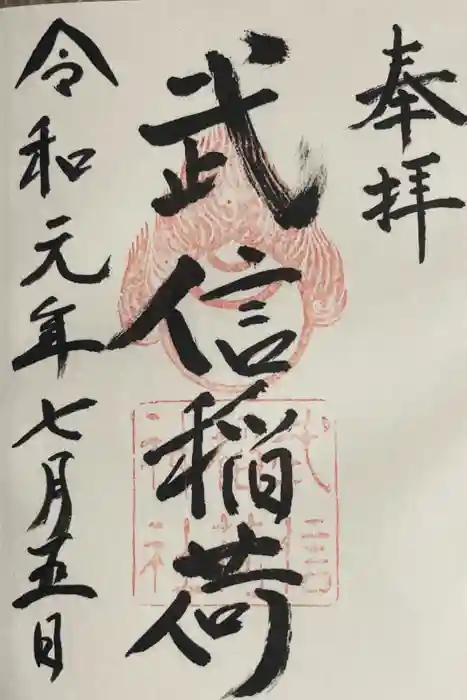 奉拝
武信稲荷
武信稲荷神社
令和元年七月五日